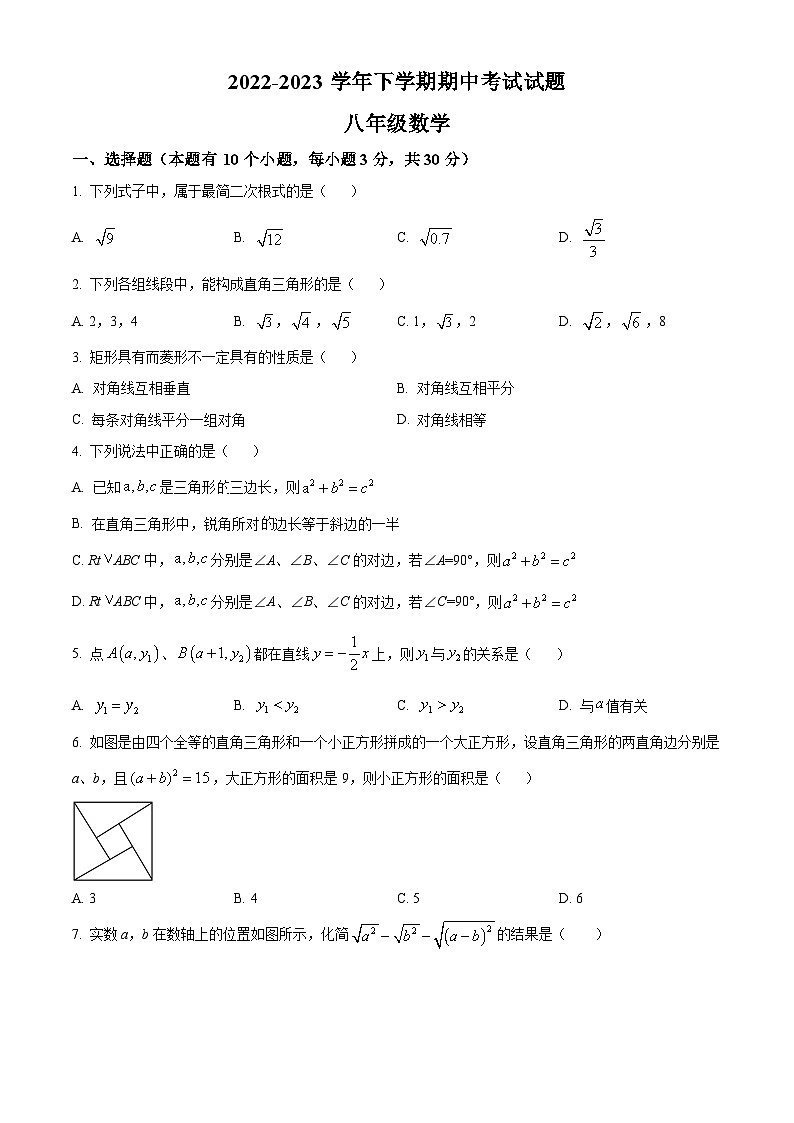 2022-2023 学年下学期期中考试试题
八年级数学
一、选择题（本题有 10 个小题，每小题 3 分，共 30 分）
1. 下列式子中，属于最简二次根式的是（ ）
A. √9 B. √12 C. √0.7 D. √3/3
2. 下列各组线段中，能构成直角三角形的是（ ）
A. 2，3，4 B. √3，√4，√5 C. 1，√3，2 D. √2，√6，8
3. 矩形具有而菱形不一定具有的性质是（ ）
A. 对角线互相垂直 B. 对角线互相平分
C. 每条对角线平分一组对角 D. 对角线相等
4. 下列说法中正确的是（ ）
A. 已知 a,b,c 是三角形的三边长，则 a² + b² = c²
B. 在直角三角形中，锐角所对的边长等于斜边的一半
C. Rt∨ABC 中，a,b,c 分别是∠A、∠B、∠C 的对边，若∠A=90°，则 a² + b² = c²
D. Rt∨ABC 中，a,b,c 分别是∠A、∠B、∠C 的对边，若∠C=90°，则 a² + b² = c²
5. 点 A(a, y₁)、B(a+1, y₂) 都在直线 y = −1/2 x 上，则 y₁ 与 y₂ 的关系是（ ）
A. y₁ = y₂ B. y₁ < y₂ C. y₁ > y₂ D. 与 a 值有关
6. 如图是由四个全等的直角三角形和一个小正方形拼成的一个大正方形，设直角三角形的两直角边分别是
a、b，且 (a + b)² = 15，大正方形的面积是 9，则小正方形的面积是（ ）
A. 3 B. 4 C. 5 D. 6
7. 实数 a，b 在数轴上的位置如图所示，化简 √a² − √b² − √(a−b)² 的结果是（ ）